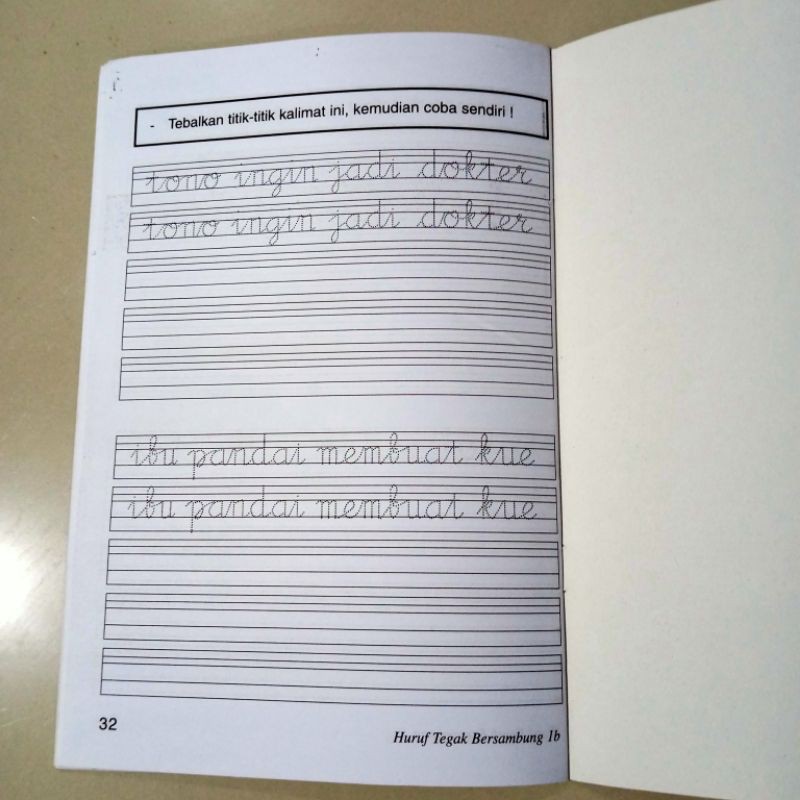 - Tebalkan titik-titik kalimat ini, kemudian coba sendiri !
tono ingin jadi dokter
tono ingin jadi dokter
ibu pandai membuat kue
ibu pandai membuat kue
32
Huruf Tegak Bersambung 1b